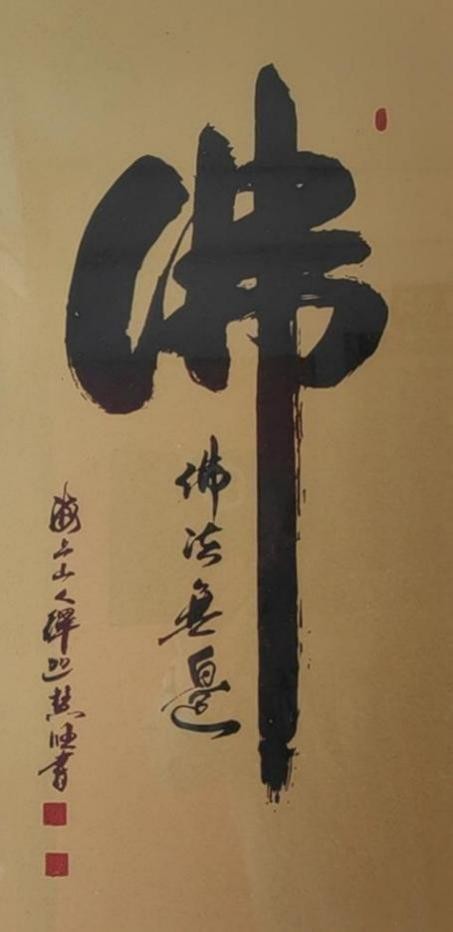 佛
佛法無邊
海上山人釋迦慧憶書